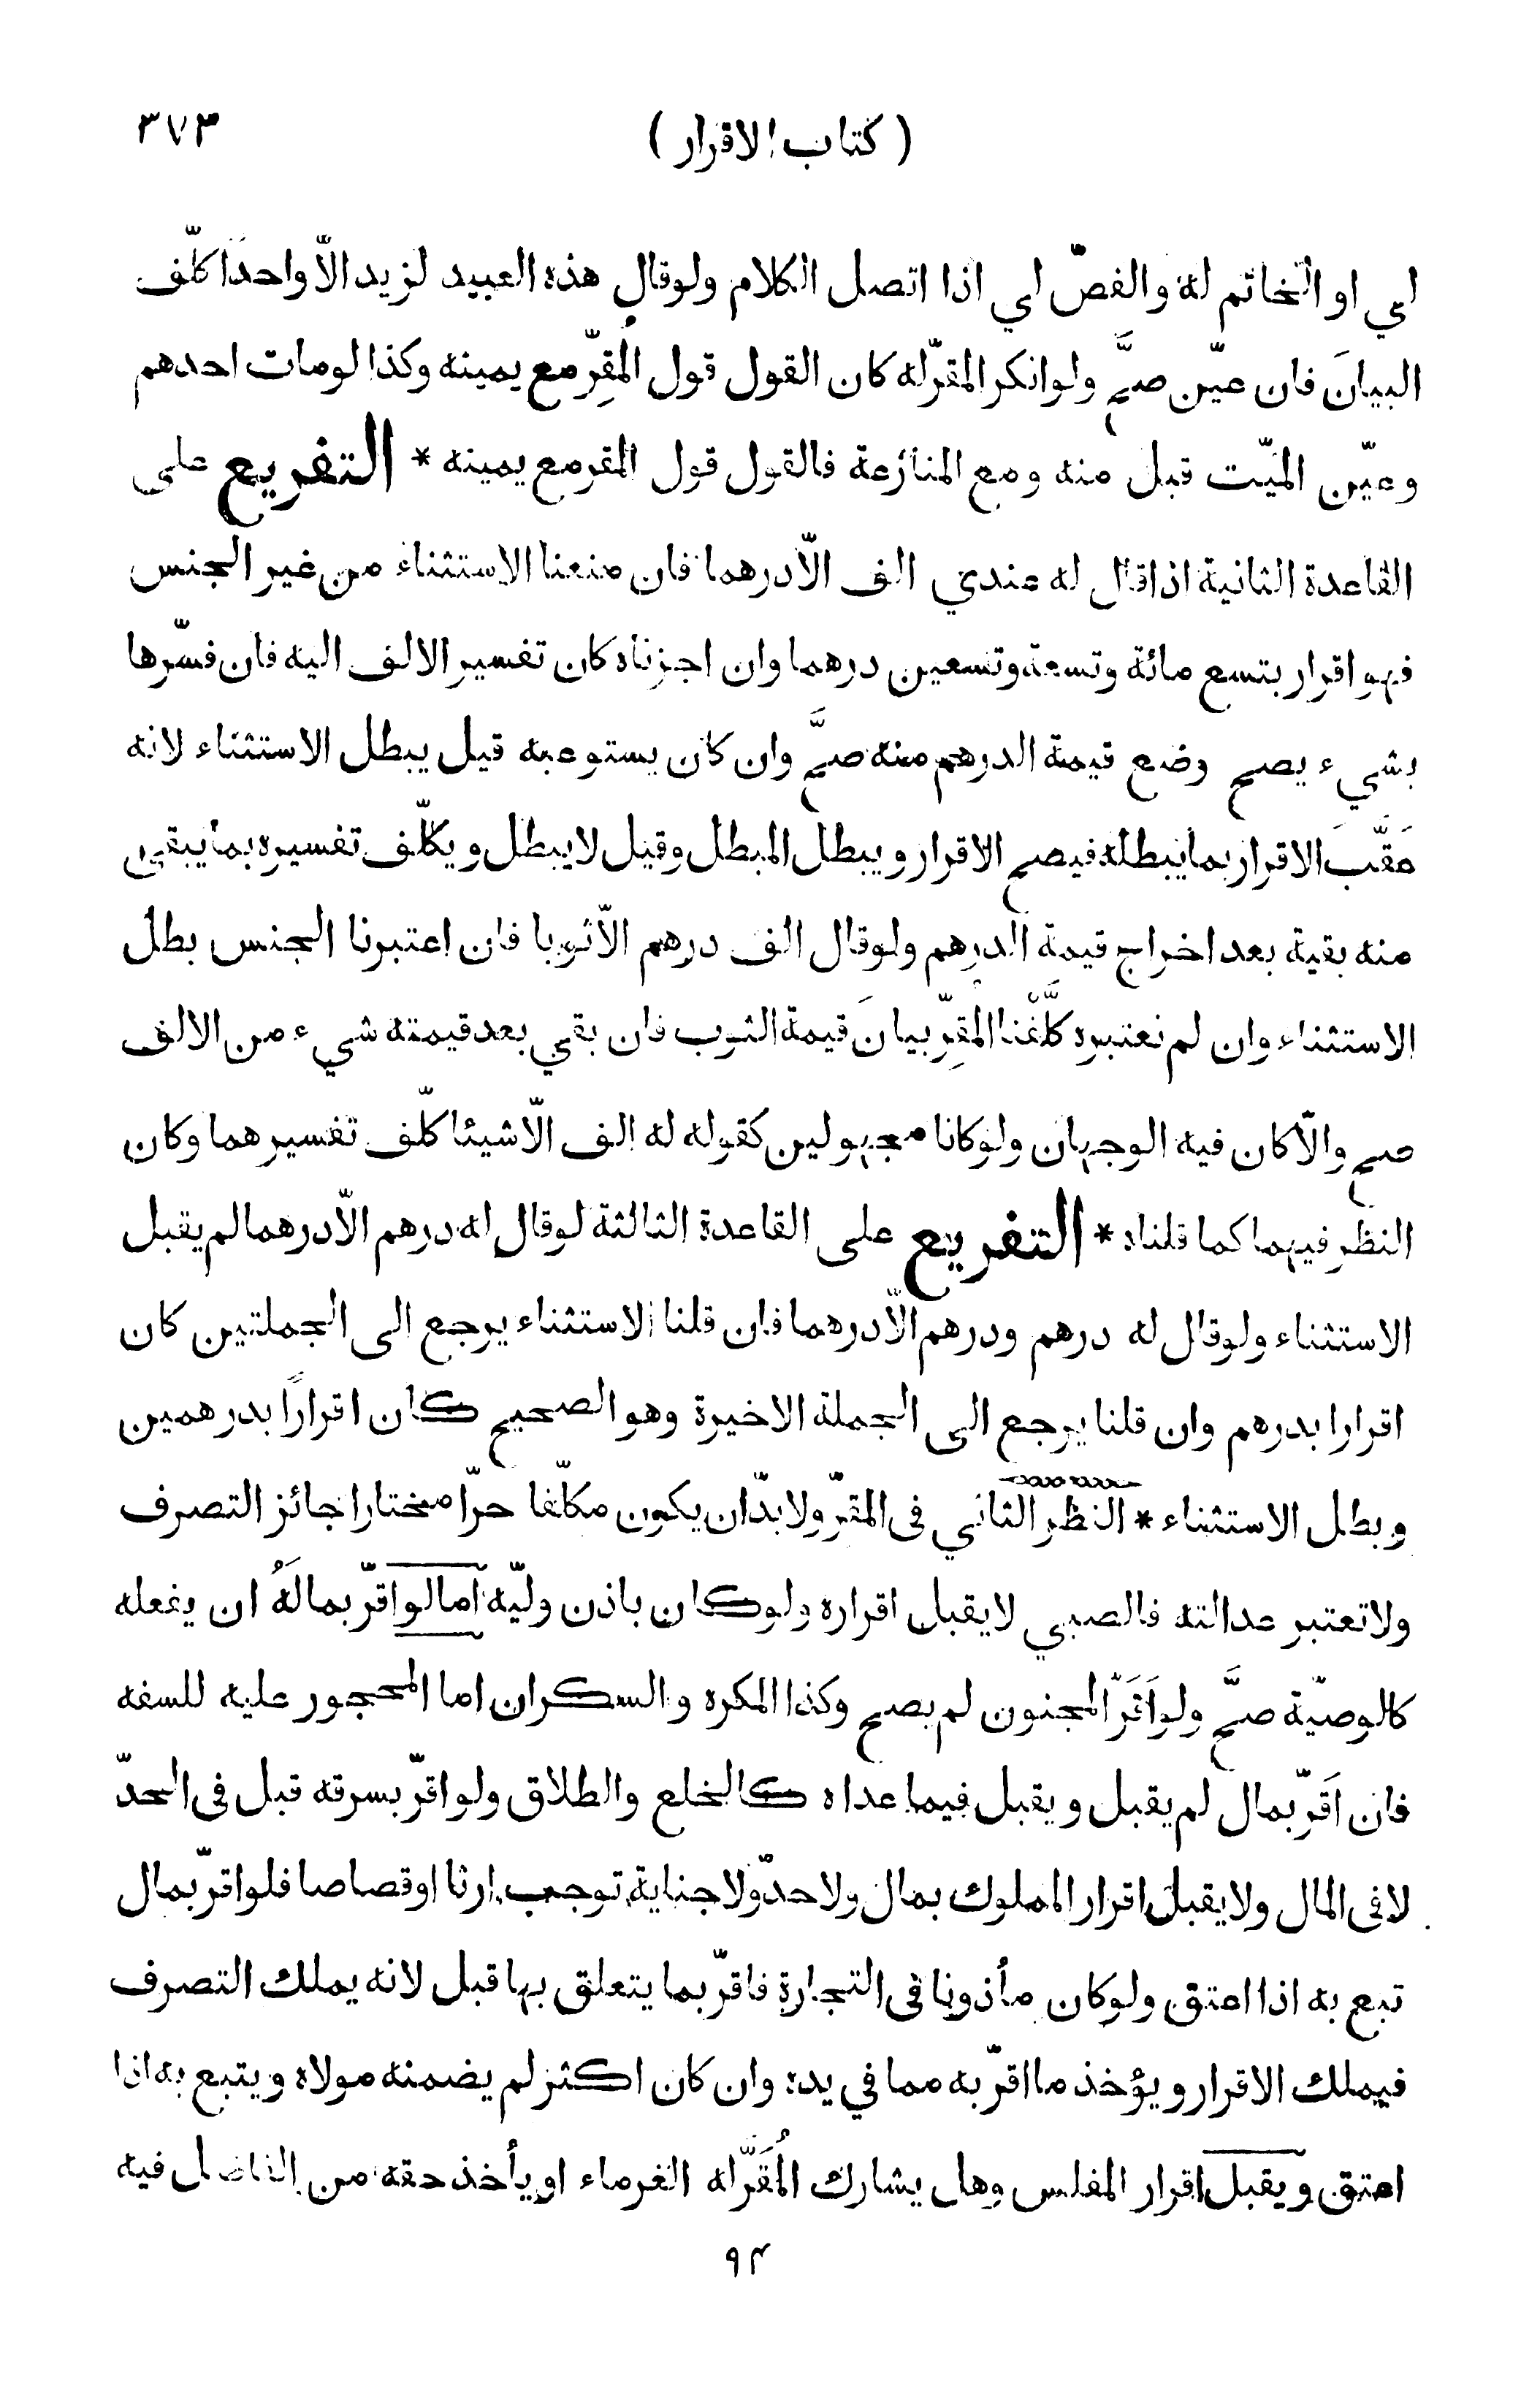 ٣٧٣
( كتاب الاقرار )
لي او الخاتم له والفصّ لي اذا اتصل الكلام ولو قال هذه العبيد لزيد الاّ واحدًا كلّف
البيانَ فان عيّن صحَّ ولو انكر المقرّ له كان القول قول المُقِرّ مع يمينه وكذا لو مات احدهم
وعيّن الميّت قبل منه ومع المنازعة فالقول قول المقر مع يمينه * التفريع على
القاعدة الثانية اذا قال له عندي الف الاّ درهما فان منعنا الاستثناء من غير الجنس
فهو اقرار بتسع مائة وتسعة وتسعين درهما وان اجزناه كان تفسير الالف اليه فان فسّرها
بشيء يصح وضع قيمة الدرهم منه صحَّ وان كان يستوعبه قيل يبطل الاستثناء لانه
عَقَّبَ الاقرار بما يبطله فيصح الاقرار ويبطل المبطل وقيل لا يبطل ويكلّف تفسيره بما يبقى
منه بقية بعد اخراج قيمة الدرهم ولو قال الف درهم الاّ ثوبا فان اعتبرنا الجنس بطل
الاستثناء وان لم نعتبره كلَّفْنا المُقِرّ بيانَ قيمة الثوب فان بقي بعد قيمته شيء من الالف
صح والاّ كان فيه الوجهان ولو كانا مجهولين كقوله له الف الاّ شيئا كلّف تفسيرهما وكان
النظر فيهما كما قلناه * التفريع على القاعدة الثالثة لو قال له درهم الاّ درهما لم يقبل
الاستثناء ولو قال له درهم ودرهم الاّ درهما فان قلنا الاستثناء يرجع الى الجملتين كان
اقرارا بدرهم وان قلنا يرجع الى الجملة الاخيرة وهو الصحيح كان اقرارًا بدرهمين
وبطل الاستثناء * النظر الثاني فى المقرّ ولا بدّ ان يكون مكلّفا حرّا مختارا جائز التصرف
ولا تعتبر عدالته فالصبي لا يقبل اقراره ولو كان باذن وليّه اما لو اقرّ بما لَهُ ان يفعله
كالوصيّة صحَّ ولو اَقَرّ المجنون لم يصح وكذا المكره والسكران اما المحجور عليه للسفه
فان اَقرّ بمال لم يقبل ويقبل فيما عداه كالخلع والطلاق ولو اقرّ بسرقه قبل فى الحدّ
لا فى المال ولا يقبل اقرار المملوك بمال ولا حدّ ولا جناية توجب ارثا او قصاصا فلو اقرّ بمال
تبع به اذا اعتق ولو كان مأذونا فى التجارة فاقرّ بما يتعلق بها قبل لانه يملك التصرف
فيملك الاقرار ويؤخذ ما اقرّ به مما في يده وان كان اكثر لم يضمنه مولاه ويتبع به اذا
اعتق ويقبل اقرار المفلس وهل يشارك المُقَرّ له الغرماء او يأخذ حقه من الفاضل فيه
٩٤